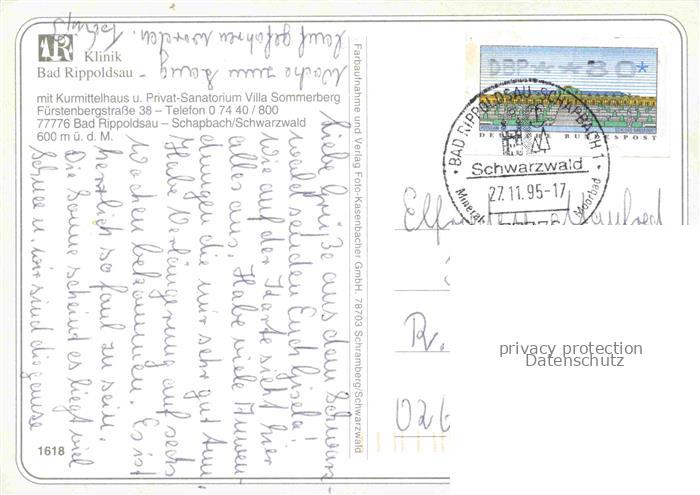 R
Klinik
Bad Rippoldsau
mit Kurmittelhaus u. Privat-Sanatorium Villa Sommerberg
Fürstenbergstraße 38 – Telefon 0 74 40 / 800
77776 Bad Rippoldsau – Schapbach/Schwarzwald
600 m ü. d. M.
Liebe Grüße aus dem Schwarz-
wald senden Euch Gisela!
Wie auf der Karte sieht hier
alles aus. Habe viele Anwen-
dungen die mir sehr gut tun
Habe Verlängerung auf sechs
Wochen bekommen. Es ist
herrlich so faul zu sein.
Die Sonne scheint es liegt viel
Schnee u. wir sind die ganze
Woche zum Lang-
lauf gefahren worden.
1618
Farbaufnahme und Verlag Foto-Kasenbacher GmbH, 78703 Schramberg/Schwarzwald
DBP
DEUTSCHE BUNDESPOST
BAD RIPPOLDSAU-SCHAPBACH 1
Schwarzwald
27.11.95-17
Mineral-
Moorbad
77776
Manfred
R.
026
privacy protection
Datenschutz